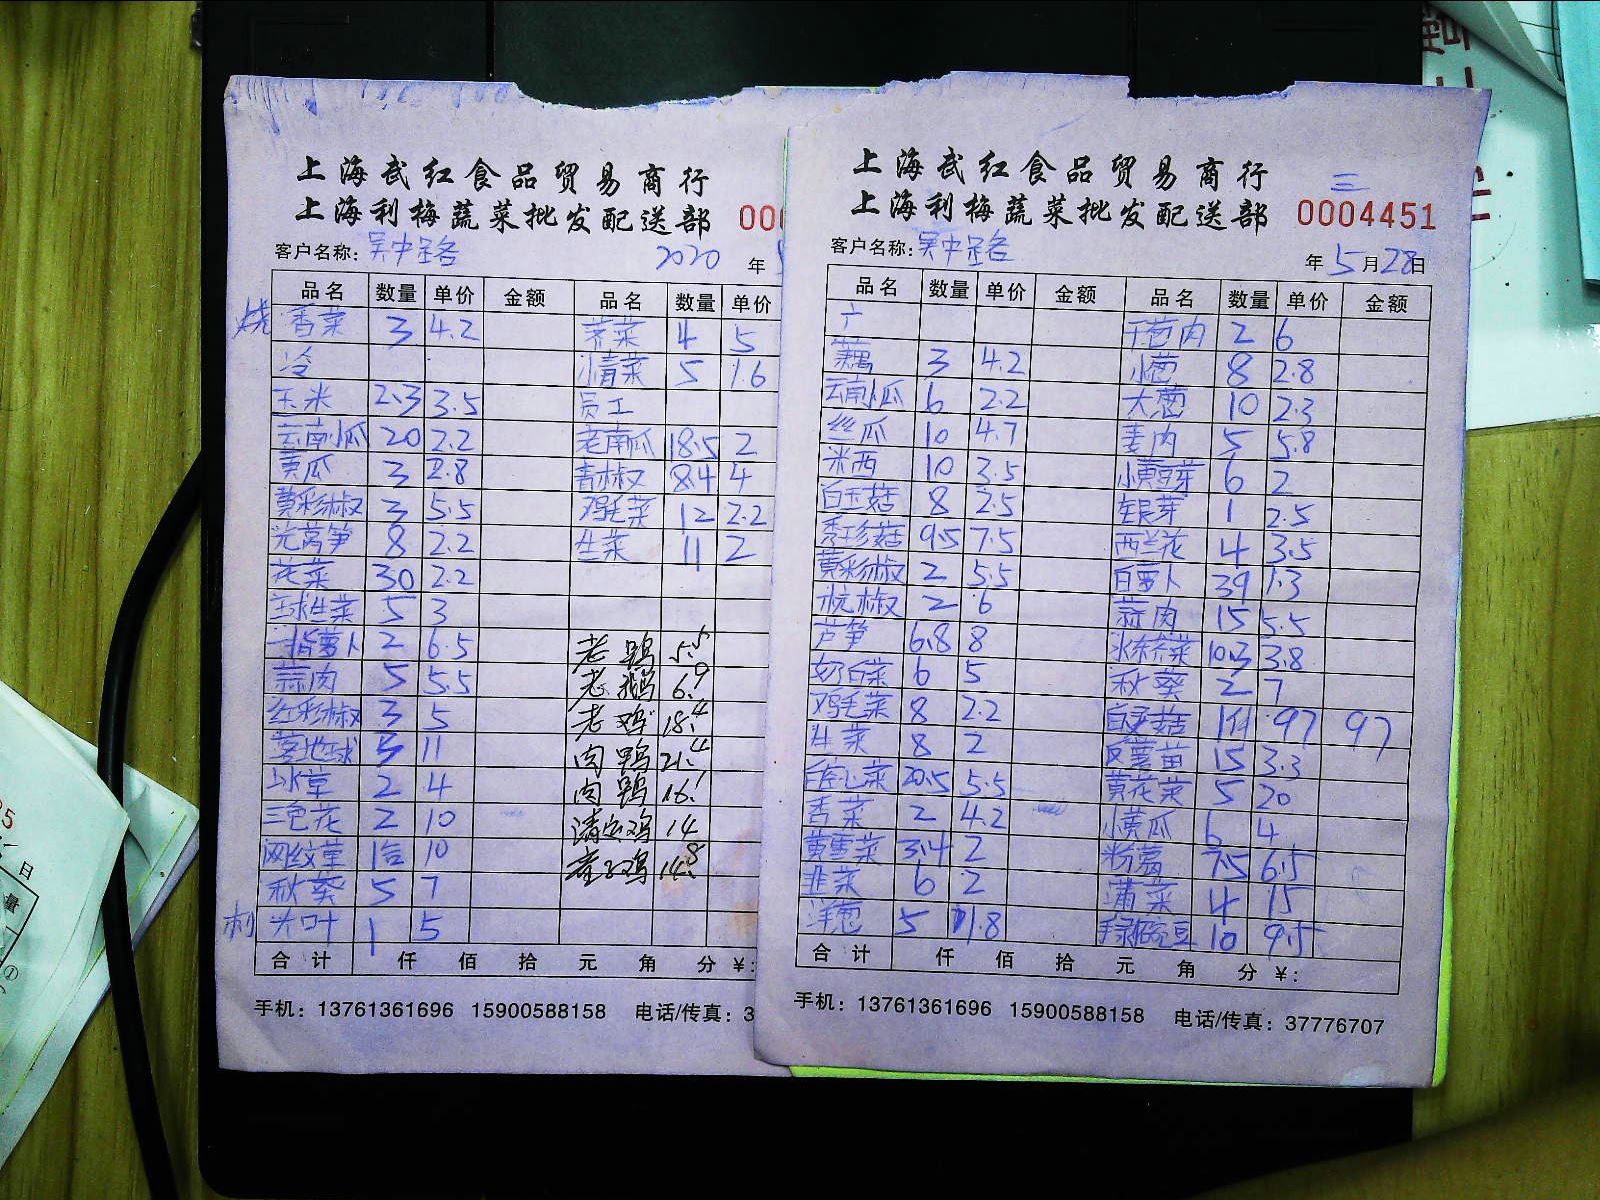 上海武红食品贸易商行
上海利梅蔬菜批发配送部 000
客户名称: 吴中路 2020 年
品名 数量 单价 金额 品名 数量 单价
烧 香菜 3 4.2 荠菜 4 5
冷 小青菜 5 1.6
玉米 2.3 3.5 员工
云南小瓜 20 2.2 老南瓜 18.5 2
黄瓜 3 2.8 青椒 8.4 4
黄彩椒 3 5.5 鸡毛菜 12 2.2
光莴笋 8 2.2 生菜 11 2
花菜 30 2.2
球生菜 5 3
指萝卜 2 6.5 老鸭 5.5
蒜肉 5 5.5 老鹅 6.9
红彩椒 3 5 老鸡 18.4
地球 5 11 肉鸭 21.4
冰草 2 4 肉鸭 16.1
三色花 2 10 清远鸡 14
网纹草 1合 10 童子鸡 14.8
秋葵 5 7
刺 尖叶 1 5
合计 仟 佰 拾 元 角 分 ¥:
手机: 13761361696 15900588158 电话/传真: 3
上海武红食品贸易商行
三
上海利梅蔬菜批发配送部 0004451
客户名称: 吴中路 年 5 月 28 日
品名 数量 单价 金额 品名 数量 单价 金额
干葱肉 2 6
藕 3 4.2 小葱 8 2.8
云南小瓜 6 2.2 大葱 10 2.3
丝瓜 10 4.7 姜肉 5 5.8
米西 10 3.5 小黄豆芽 6 2
白玉菇 8 2.5 银芽 1 2.5
秀珍菇 9.5 7.5 西兰花 4 3.5
黄彩椒 2 5.5 白萝卜 39 1.3
杭椒 2 6 蒜肉 15 5.5
芦笋 6.8 8 冰冻荠菜 10.3 3.8
奶白菜 6 5 秋葵 2 7
鸡毛菜 8 2.2 白灵菇 1件 97 97
生菜 8 2 15 3.3
菜心 20.5 5.5 黄花菜 5 20
香菜 2 4.2 小黄瓜 6 4
黄雪菜 3.4 2 粉葛 7.5 6.5
韭菜 6 2 蒲菜 4 15
洋葱 5 1.8 豌豆 10 9.5
合计 仟 佰 拾 元 角 分 ¥:
手机: 13761361696 15900588158 电话/传真: 37776707